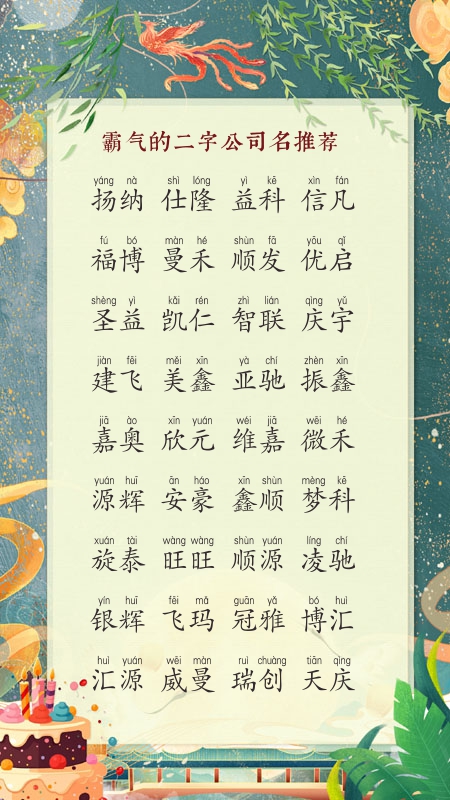 霸气的二字公司名推荐
yáng nà shì lóng yì kē xìn fán
扬纳 仕隆 益科 信凡
fú bó màn hé shùn fā yōu qǐ
福博 曼禾 顺发 优启
shèng yì kǎi rén zhì lián qìng yǔ
圣益 凯仁 智联 庆宇
jiàn fēi měi xīn yà chí zhèn xīn
建飞 美鑫 亚驰 振鑫
jiā ào xīn yuán wéi jiā wēi hé
嘉奥 欣元 维嘉 微禾
yuán huī ān háo xīn shùn mèng kē
源辉 安豪 鑫顺 梦科
xuán tài wàng wàng shùn yuán líng chí
旋泰 旺旺 顺源 凌驰
yín huī fēi mǎ guān yǎ bó huì
银辉 飞玛 冠雅 博汇
huì yuán wēi màn ruì chuàng tiān qìng
汇源 威曼 瑞创 天庆